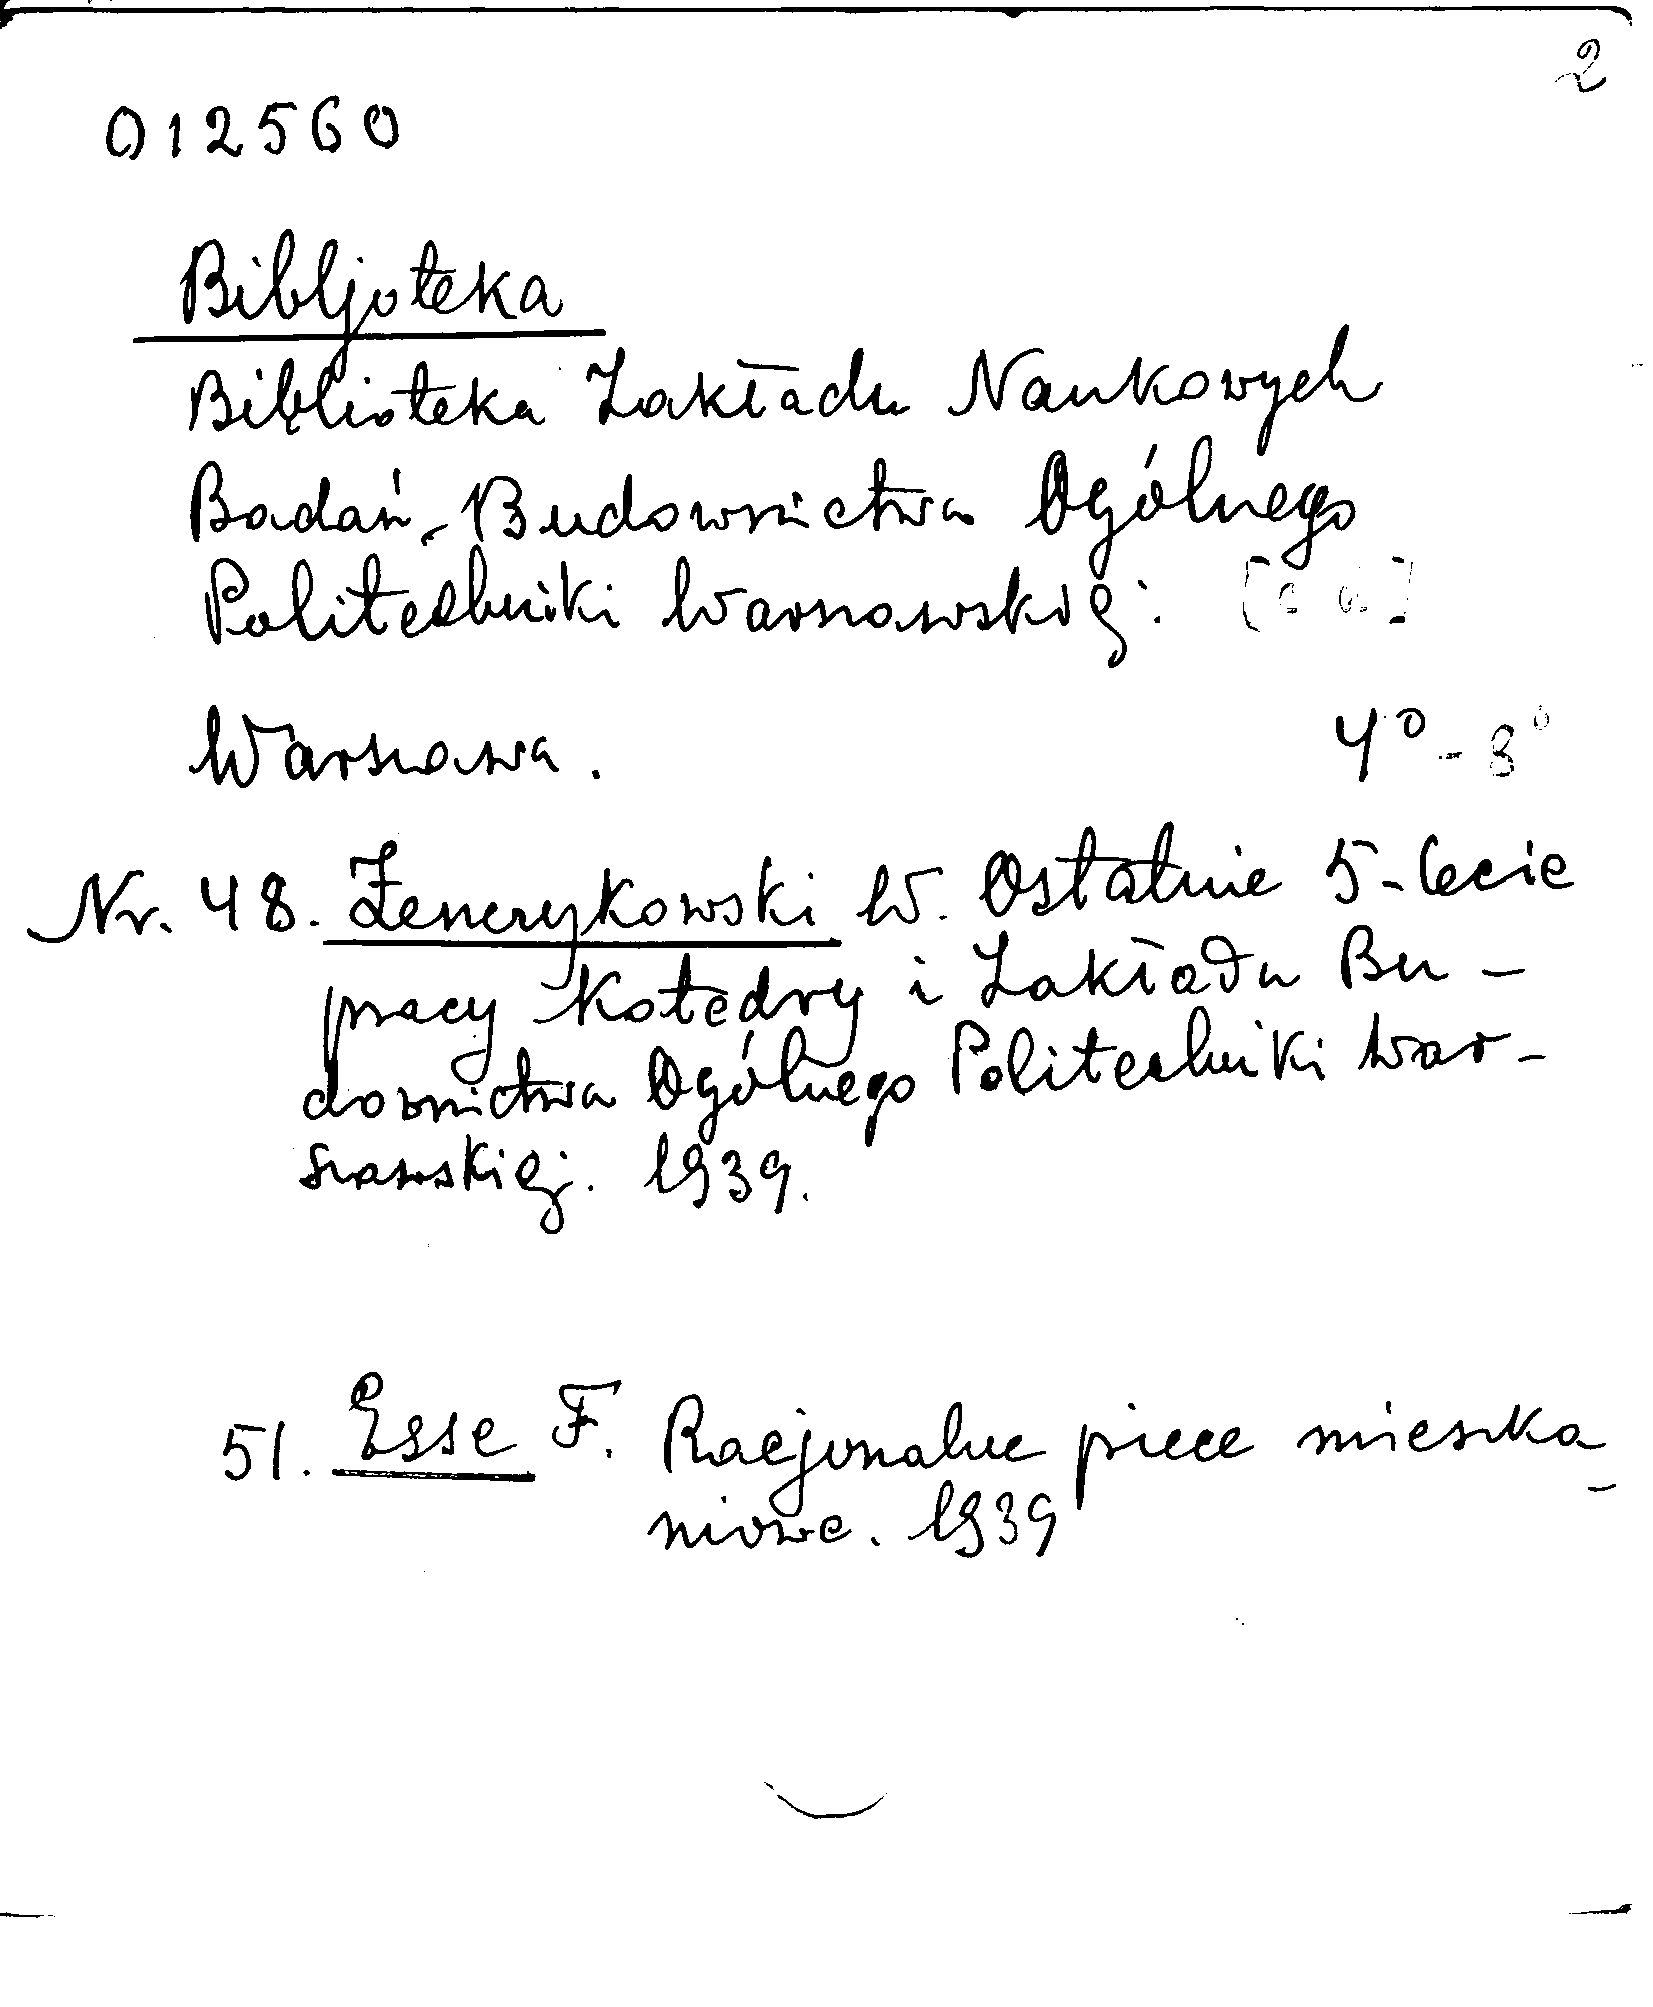 2
012560
Bibljoteka
Biblioteka Zakładu Naukowych
Badań Budownictwa Ogólnego
Politechniki Warszawskiej.
Warszawa. 4° - 8°
Nr. 48. Żenczykowski W. Ostatnie 5-lecie
pracy Katedry i Zakładu Bu-
downictwa Ogólnego Politechniki War-
szawskiej. 1939.
51. Esse F. Racjonalne piece mieszka-
niowe. 1939